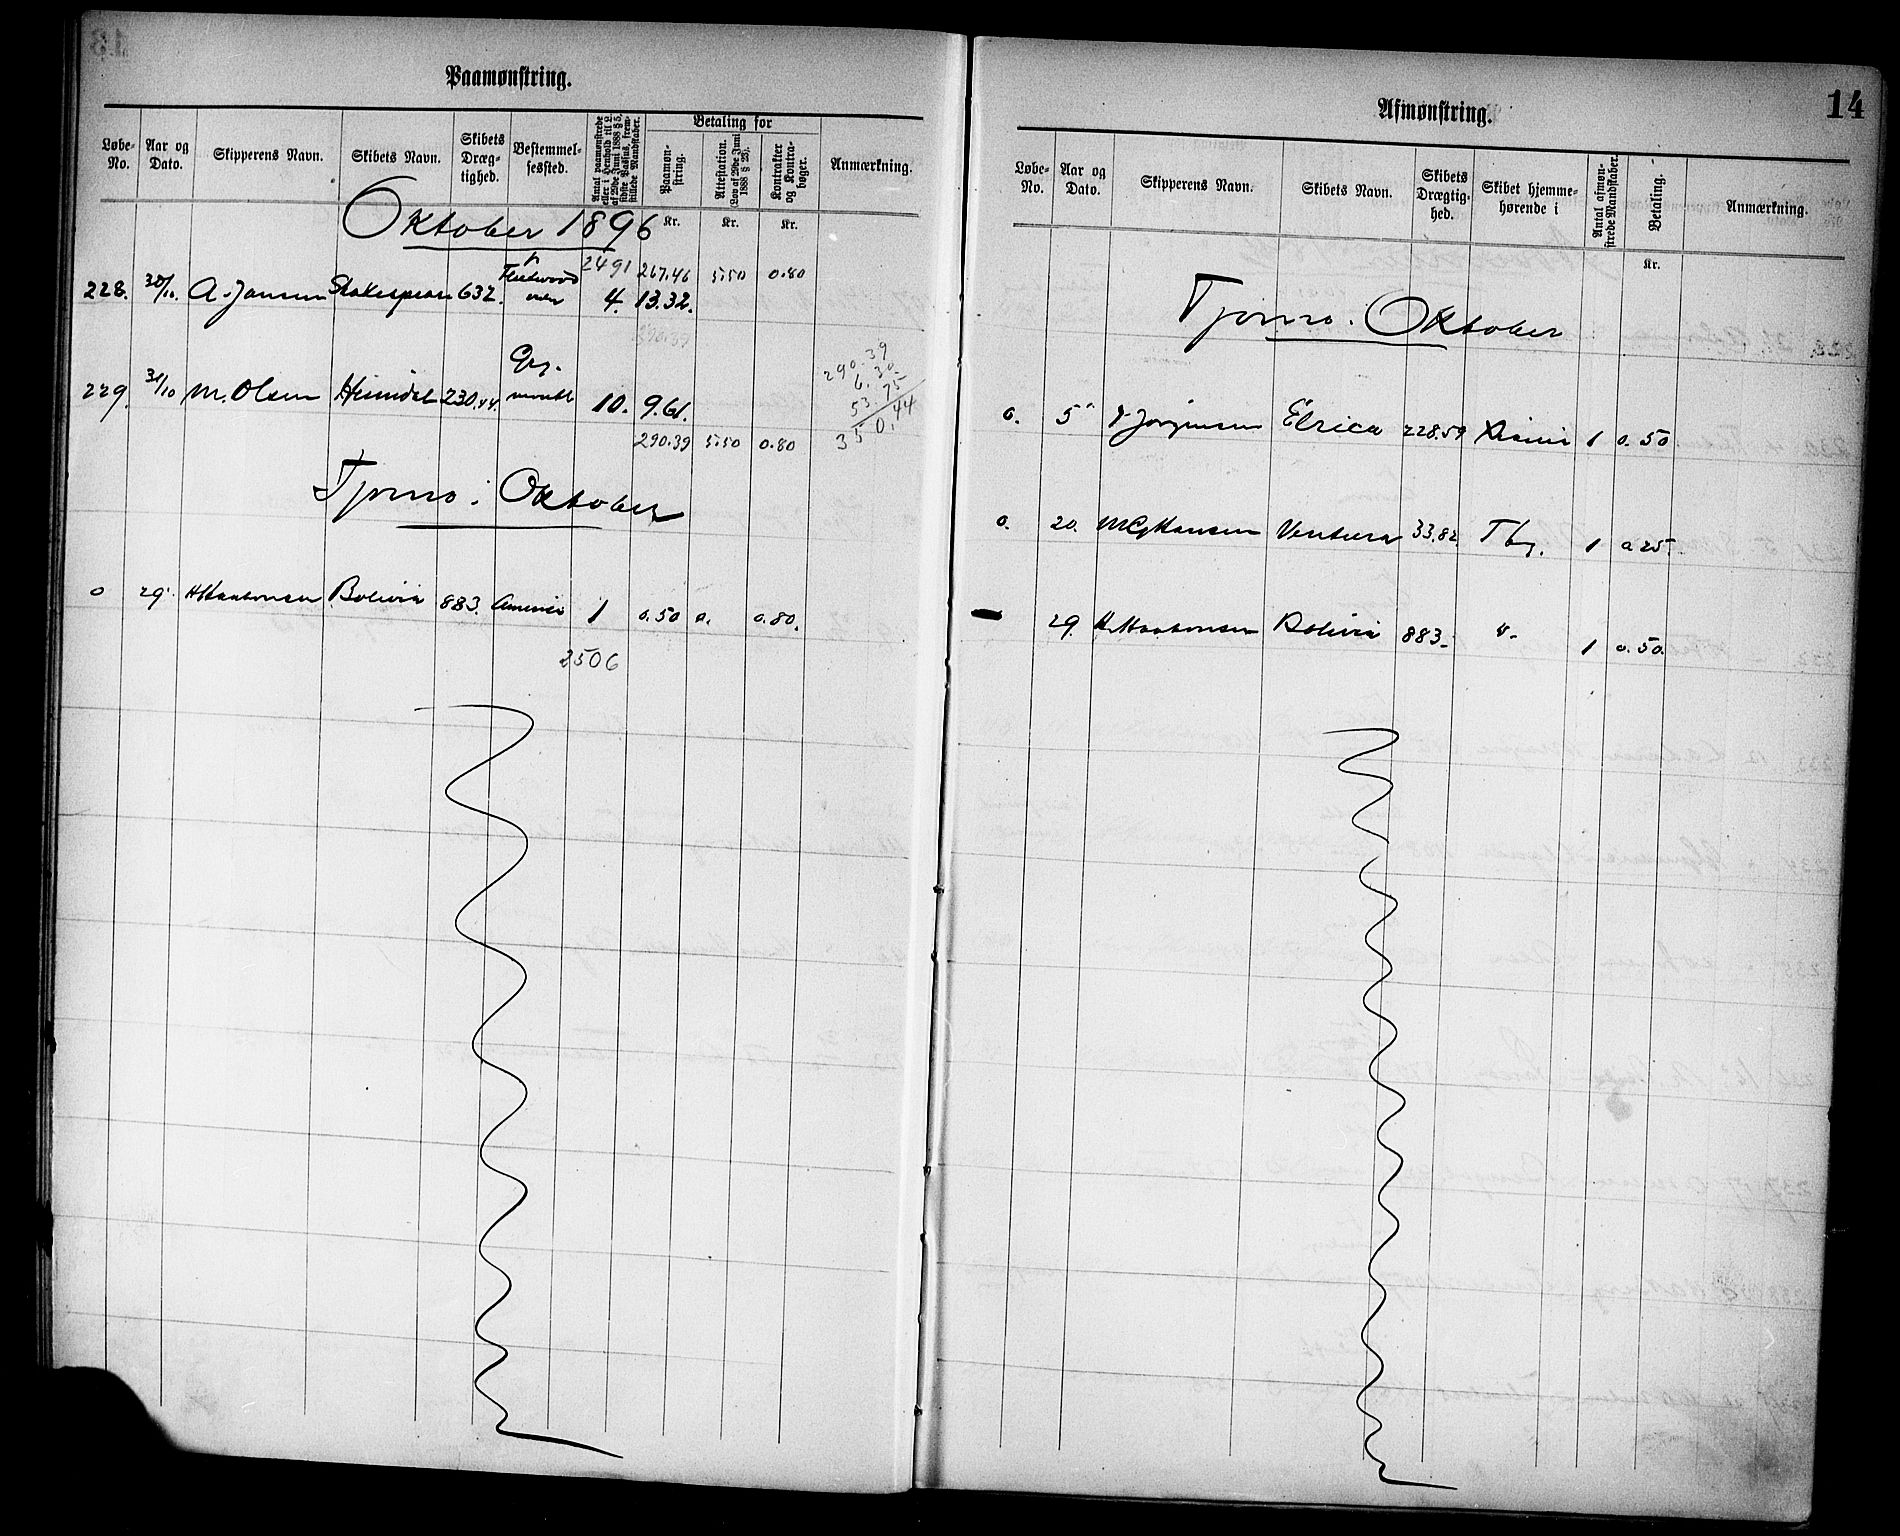 Paamønstring.
Løbe-No. Aar og Dato. Skipperens Navn. Skibets Navn. Skibets Dræg-tighed. Bestemmel-sessted. Antal paamønstrede eller i Henhold til L. af 29de Juni 1888 § 5, sidste Passus, frem-stillede Mandskaber. Betaling for Paamøn-string. Attestation. (Lov af 29de Juni 1888 § 25). Kontrakter og Kontra-bøger. Anmærkning.
Kr. Kr. Kr.
Oktober 1896
2491 267.46 5.50 0.80
228. 30/10 A. Jansen Shakespeare 632. Fleetwood 4. 13.32.
290.39
229. 31/10 M. Olsen Heimdal 230,44. 10. 9.61.
290.39 5.50 0.80
290.39
6.30
53.75
350.44
Tjømø i Oktober
0 29. Bolivia 883. 1 0.50 0. 0.80.
2506
Afmønstring.
14
Løbe-No. Aar og Dato. Skipperens Navn. Skibets Navn. Skibets Drægtig-hed. Skibet hjemme-hørende i Antal afmøn-strede Mandskaber. Betaling. Anmærkning.
Kr.
Tjømø. Oktober
0. 5 Jørgensen Elrica 228.59 1 0.50
0. 20. Hansen Ventura 33.82. Tbg. 1 0.25
29. Bolivia 883 " 1 0.50.